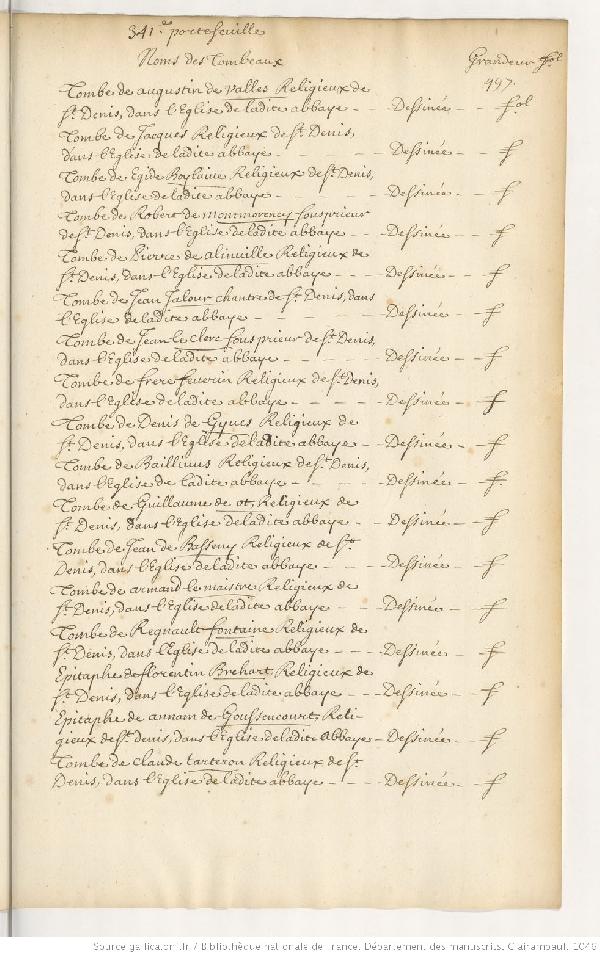 341.e portefeuille
Noms des Tombeaux Grandeur fol
497.
Tombe de augustin de Valles Religieux de
St. Denis, dans l'Eglise de ladite abbaye - - Dessinée - - fol
Tombe de Jacques Religieux de St. Denis,
dans l'Eglise de ladite abbaye - - - Dessinée - - f
Tombe de Egide Religieux de St Denis,
dans l'Eglise de ladite abbaye - - - Dessinée - - f
Tombe de Robert de Montmorency sousprieur
de St. Denis, dans l'Eglise de ladite abbaye - - Dessinée - - f
Tombe de Pierre de alinville Religieux de
St. Denis, dans l'Eglise de ladite abbaye - - Dessinée - - f
Tombe de Jean Jalour chantre de St. Denis, dans
l'Eglise de ladite abbaye - - - Dessinée - - f
Tombe de Jean le Clerc sousprieur de St. Denis,
dans l'Eglise de ladite abbaye - - - - Dessinée - - f
Tombe de frere severin Religieux de St. Denis,
dans l'Eglise de ladite abbaye - - - - Dessinée - - f
Tombe de Denis de Religieux de
St. Denis, dans l'Eglise de ladite abbaye - - Dessinée - - f
Tombe de Religieux de St. Denis,
dans l'Eglise de ladite abbaye - - - Dessinée - - f.
Tombe de Guillaume de ot, Religieux de
St. Denis, dans l'Eglise de ladite abbaye - - Dessinée - - f
Tombe de Jean de Religieux de St.
Denis, dans l'Eglise de ladite abbaye - - - Dessinée - - f
Tombe de armand le maistre Religieux de
St. Denis, dans l'Eglise de ladite abbaye - - Dessinée - - f
Tombe de Regnault fontaine Religieux de
St. Denis, dans l'Eglise de ladite abbaye - - Dessinée - - f
Epitaphe de florentin Brehart, Religieux de
St. Denis, dans l'Eglise de ladite abbaye - - Dessinée - - f
Epitaphe de annam de Goussencourt, Reli-
gieux de St denis, dans l'Eglise de ladite Abbaye - Dessinée - - f
Tombe de Claude tarteron Religieux de St.
Denis, dans l'Eglise de ladite abbaye - - - Dessinée - - f
Source gallica.bnf.fr / Bibliothèque nationale de France. Département des manuscrits. Clairambault 1046